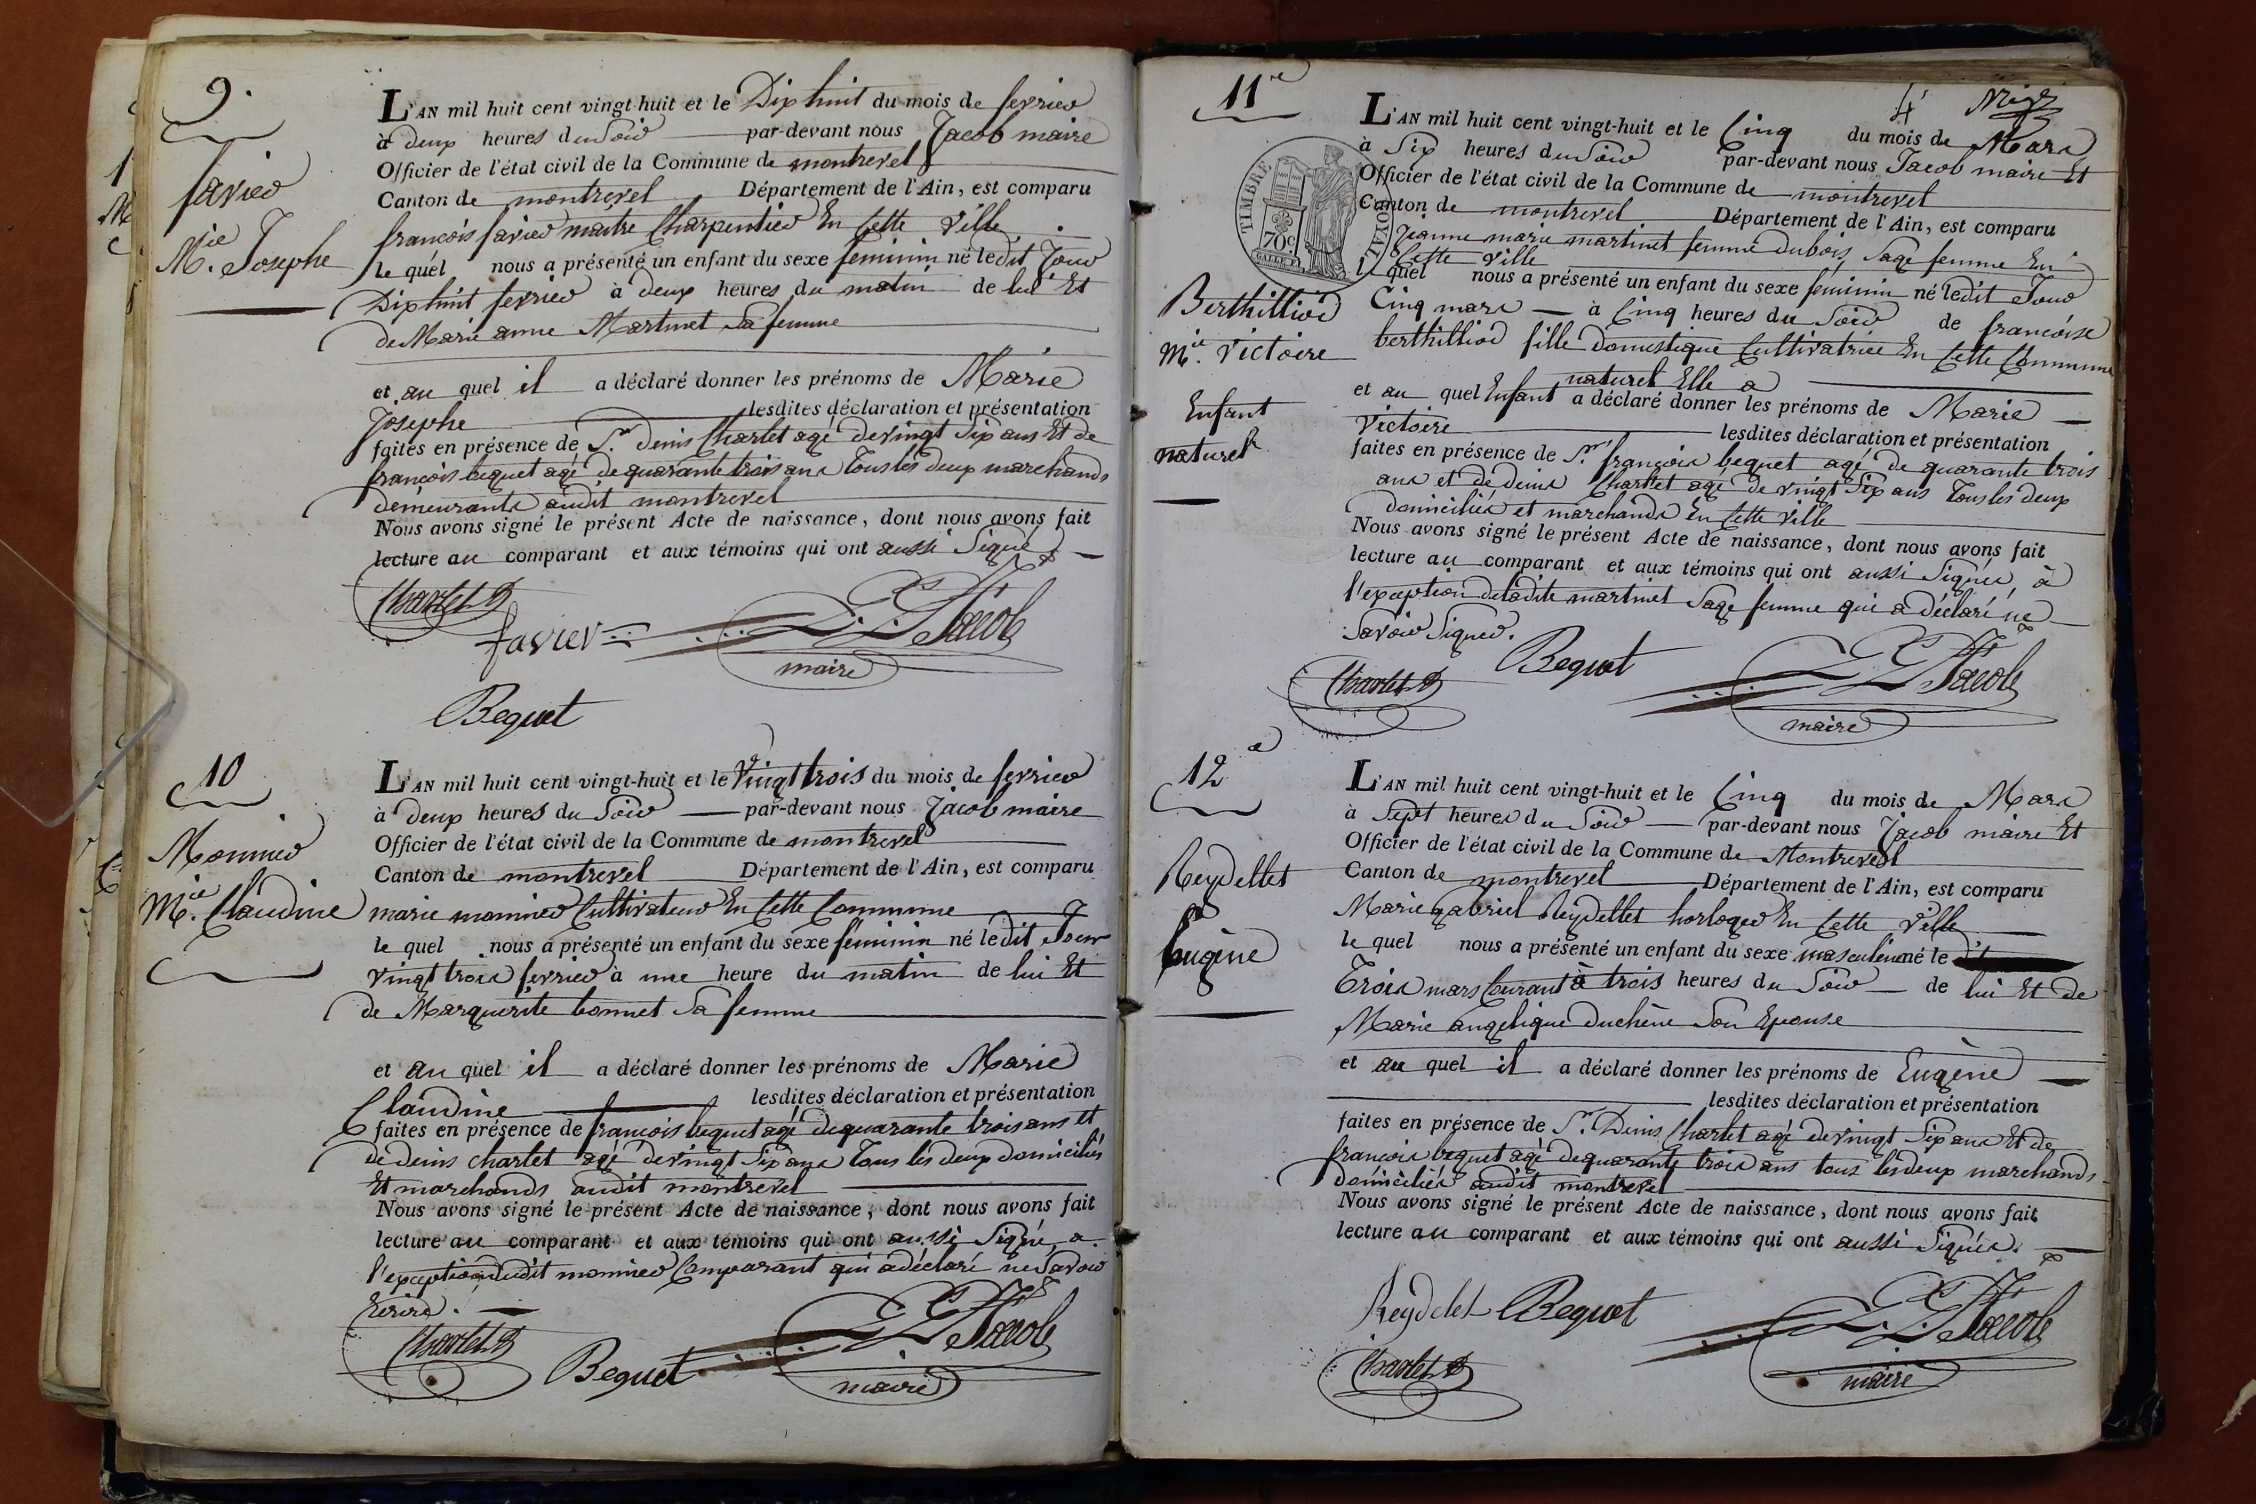 9.
favier
Mie. Josephe
L'AN mil huit cent vingt-huit et le Dix huit du mois de fevrier
à deux heures du Soir par-devant nous Jacob maire
Officier de l'état civil de la Commune de montrevel
Canton de montrevel Département de l'Ain, est comparu
françois favier maitre Charpentier En Cette Ville
le quel nous a présenté un enfant du sexe feminin né ledit Jour
Dixhuit fevrier à deux heures du matin de lui Et
de Marie anne Martinet Sa femme
et au quel il a déclaré donner les prénoms de Marie
Josephe lesdites déclaration et présentation
faites en présence de Sr. denis Charlet agé de vingt Six ans Et de
françois bequet agé de quarante trois ans Tous les deux marchands
demeurants audit montrevel
Nous avons signé le présent Acte de naissance, dont nous avons fait
lecture au comparant et aux témoins qui ont aussi Signé
Charlet
favier
Jacob
maire
Bequet
10
Monnier
Mie. Claudine
L'AN mil huit cent vingt-huit et le Vingt trois du mois de fevrier
à deux heures du Soir par-devant nous Jacob maire
Officier de l'état civil de la Commune de montrevel
Canton de montrevel Département de l'Ain, est comparu
marie monnier Cultivateur En Cette Commune
le quel nous a présenté un enfant du sexe féminin né ledit Jour
vingt trois fevrier à une heure du matin de lui Et
de Marguerite bonnet Sa femme
et au quel il a déclaré donner les prénoms de Marie
Claudine lesdites déclaration et présentation
faites en présence de françois bequet agé de quarante trois ans et
de denis charlet agé de vingt Six ans Tous les deux domiciliés
Et marchands audit montrevel
Nous avons signé le présent Acte de naissance, dont nous avons fait
lecture au comparant et aux témoins qui ont aussi Signé a
l'exception dudit monnier Comparant qui a déclaré ne Savoir
Ecrire.
Charlet
Bequet
Jacob
maire
11e
4
TIMBRE ROYAL
70c
Berthilliod
Mie. Victoire
Enfant
naturel
L'AN mil huit cent vingt-huit et le Cinq du mois de Mars
à Six heures du Soir par-devant nous Jacob maire Et
Officier de l'état civil de la Commune de montrevel
Canton de montrevel Département de l'Ain, est comparu
Jeanne marie martinet femme dubois, Sage femme En
Cette Ville
le quel nous a présenté un enfant du sexe féminin né ledit Jour
Cinq mars à Cinq heures du Soir de francoise
berthilliod fille domestique Cultivatrice En Cette Commune
naturel Elle a
et au quel Enfant a déclaré donner les prénoms de Marie
Victoire lesdites déclaration et présentation
faites en présence de Sr. françois bequet agé de quarante trois
ans et de denis Charlet agé de vingt Six ans Tous les deux
domiciliés et marchands En Cette Ville
Nous avons signé le présent Acte de naissance, dont nous avons fait
lecture au comparant et aux témoins qui ont aussi Signés, à
l'exception de ladite martinet Sage femme qui a déclaré ne
Savoir Signer.
Charlet
Bequet
Jacob
maire
12e
Reydellet
Eugène
L'AN mil huit cent vingt-huit et le Cinq du mois de Mars
à Sept heures du Soir par-devant nous Jacob maire Et
Officier de l'état civil de la Commune de Montrevel
Canton de montrevel Département de l'Ain, est comparu
Marie gabriel Reydellet horloger En Cette Ville
le quel nous a présenté un enfant du sexe masculin né le
Trois mars Courant à trois heures du Soir de lui Et de
Marie angelique duchène Son Epouse
et au quel il a déclaré donner les prénoms de Eugène
lesdites déclaration et présentation
faites en présence de Sr. Denis Charlet agé de vingt Six ans Et de
françois bequet agé de quarante trois ans tous les deux marchands
domiciliés audit montrevel
Nous avons signé le présent Acte de naissance, dont nous avons fait
lecture au comparant et aux témoins qui ont aussi Signés.
Reydelet Bequet
Jacob
Charlet
maire